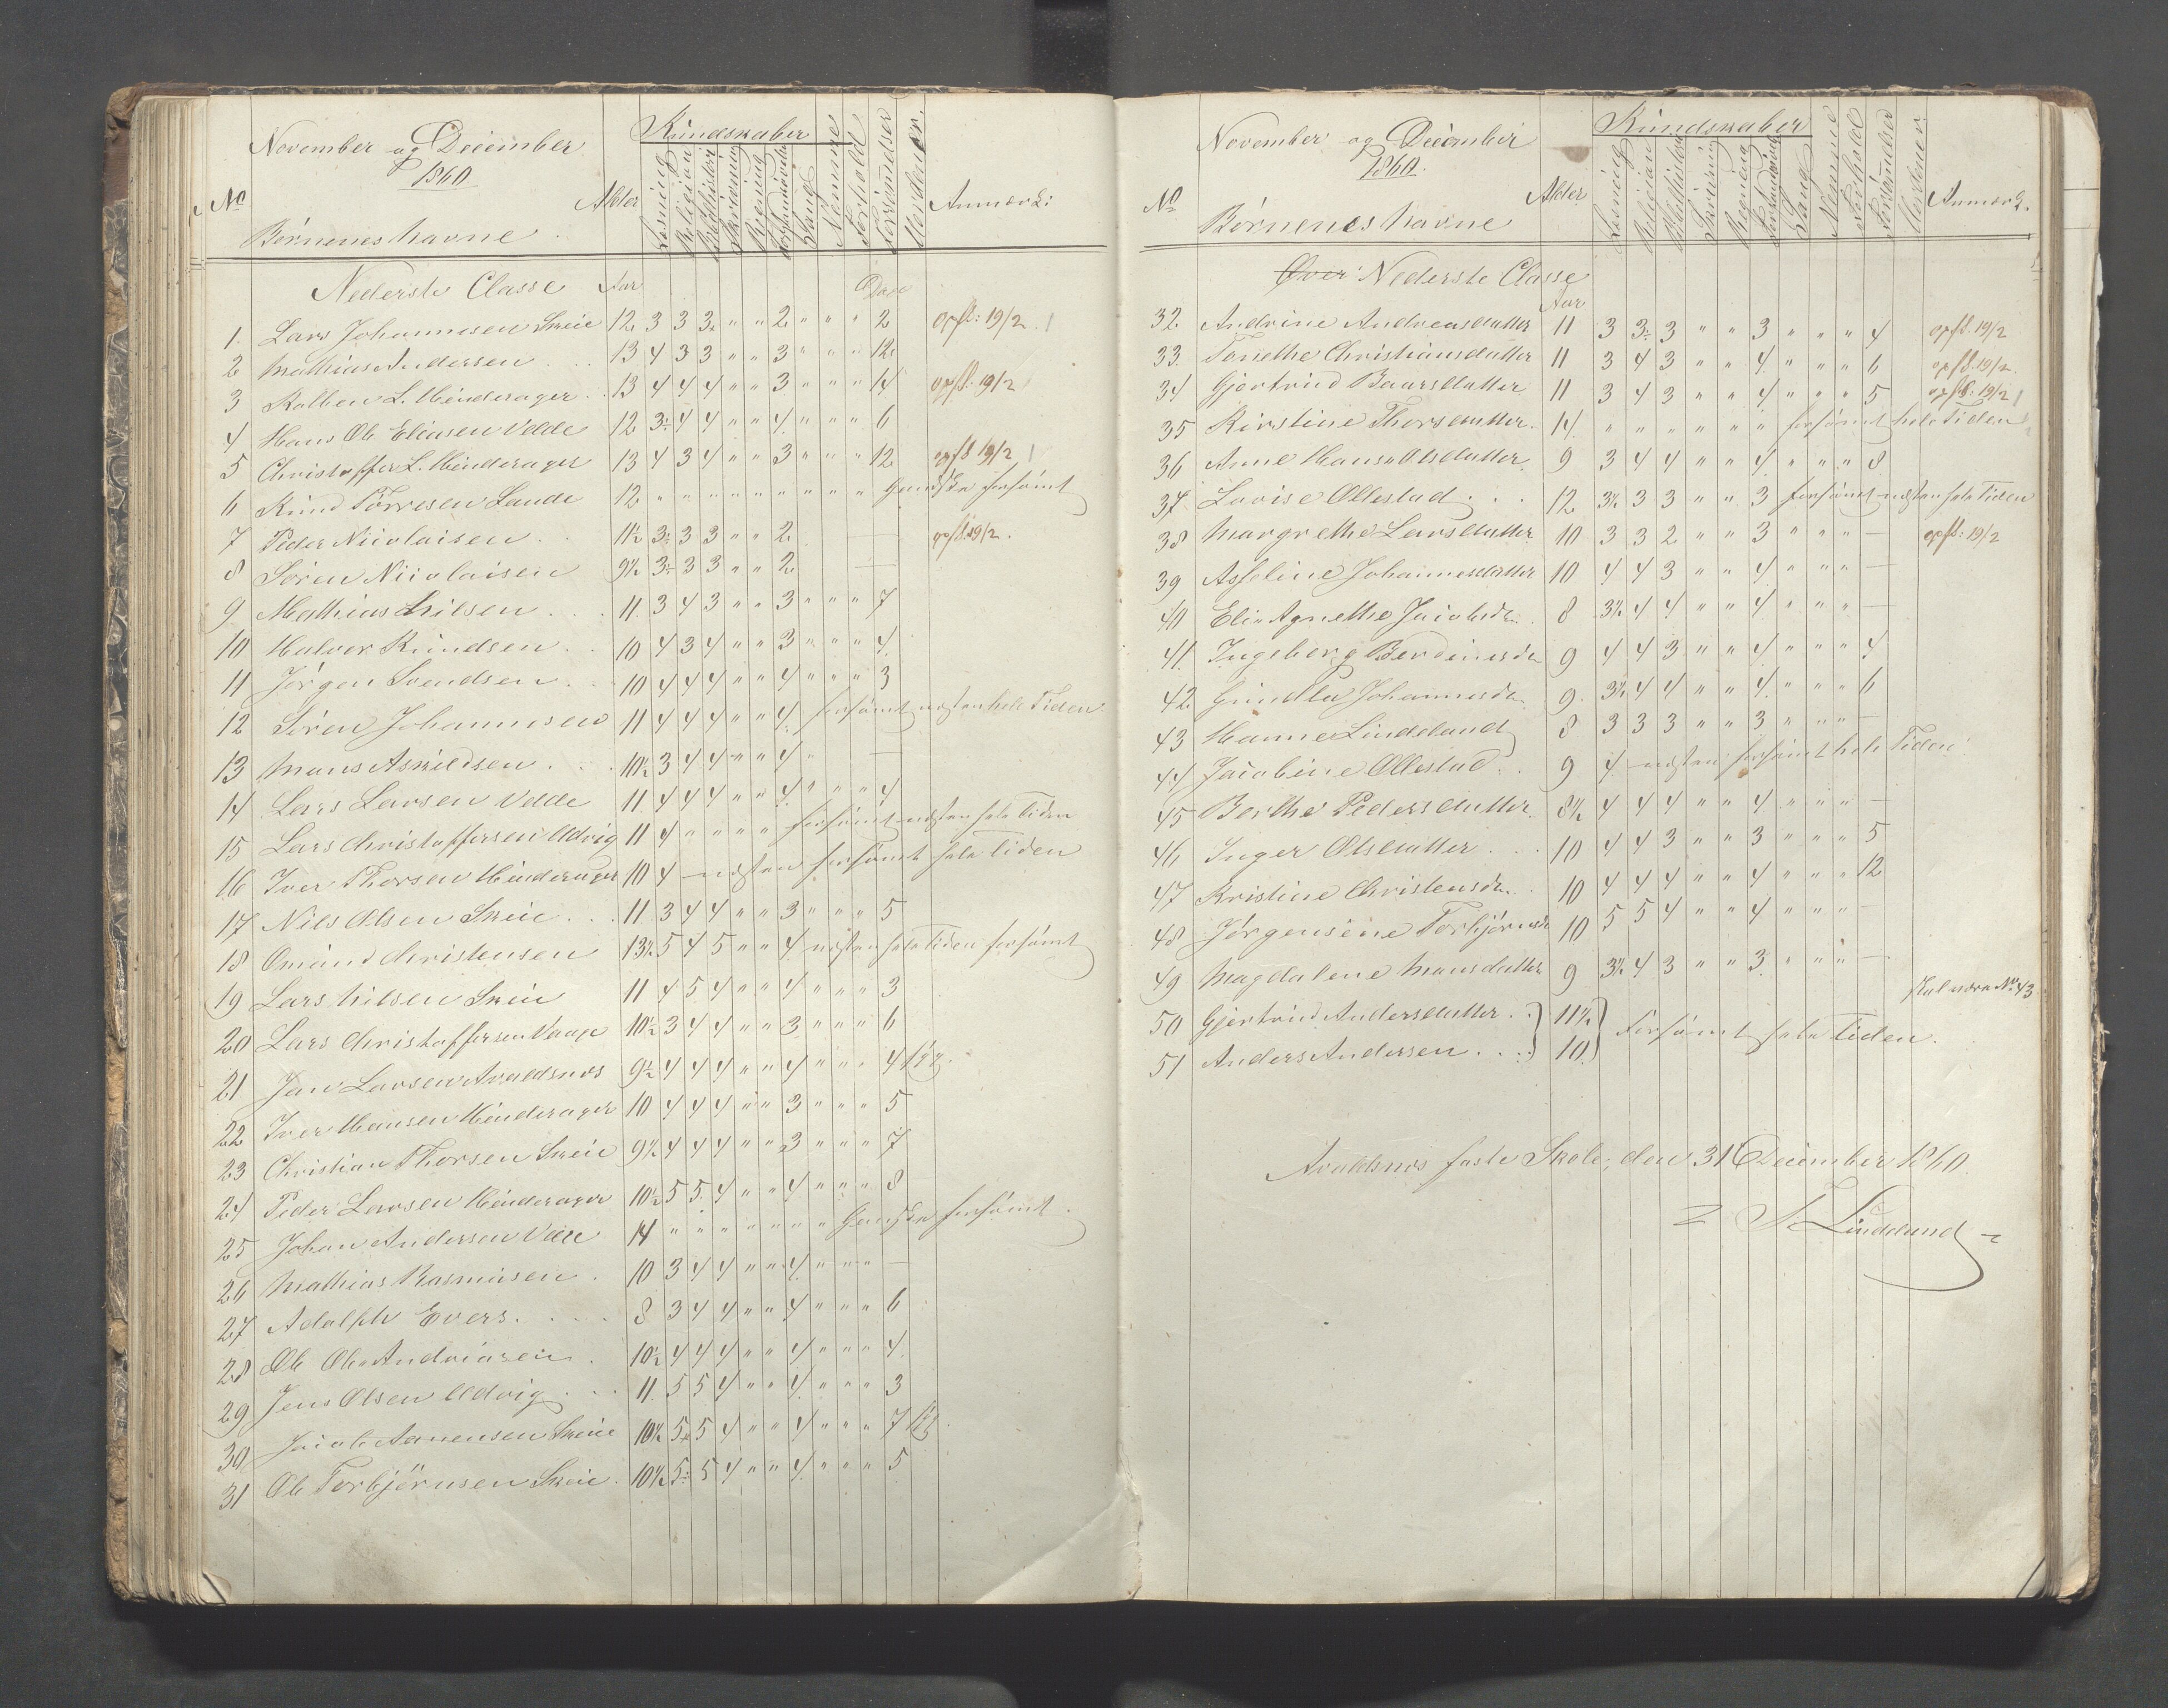 November og December
1860
No
Børnenes Navne
Alder
Kundskaber
Læsning
Religion
Bibelhistorie
Skrivning
Regning
Forstandsøvelse
Sang
Nemme
Forhold
Forsømmelser
Anmærk:
Nederste Classe Aar Dage
1. Lars Johannesen Skeie 12 3 3 3 " " 2 " " " 2 opfl: 19/2
2 Mathias Andersen 13 4 3 3 " " 3 " " " 12
3 Kolben L. Hinderager 13 4 4 4 " " 3 " " " 14 opfl. 19/2
4 Hans Ole Eliasen Velde 12 3÷ 4 4 " " 4 " " " 6
5 Christoffer L. Hinderager 13 4 3 4 " " 3 " " " 12 opfl 19/2
6 Knud Tørresen Lande 12 " " " " " " " " " Ganske forsømt
7 Peder Nicolaisen 11½ 3÷ 3 3 " " 2 — opfl. 19/2.
8 Sören Nicolaisen 9½ 3÷ 3 3 " " 2 —
9 Mathias Nilsen 11 3 4 3 " " 3 " " " 7
10 Halvor Knudsen 10 4 3 4 " " 3 " " " 4
11 Jörgen Svendsen 10 4 4 4 " " 4 " " " 3
12 Sören Johannesen 11 4 4 4 " " 4 forsømt næsten hele Tiden
13 Mons Askildsen 10½ 3 4 4 " " 4 " —
14 Lars Larsen Velde 11 4 4 4 " " 4 " " " 4
15 Lars Christoffersen Udvig 11 4 " " " " forsømt næsten hele Tiden
16 Iver Thorsen Hinderager 10 4 — næsten forsømt hele Tiden
17 Nils Olsen Skeie 11 3 4 4 " " 3 " " " 5
18 Omund Christensen 13½ 5 4 5 " " 4 næsten hele Tiden forsømt
19 Lars Nilsen Skeie 11 4 5 4 " " 4 " " " 3
20 Lars Christoffersen Vaage 10½ 3 4 4 " " 3 " " " 6
21 Jan Larsen Avaldsnes 9½ 4 4 4 " " 4 " " " 4
22 Iver Hansen Hinderager 10 4 4 4 " " 3 " " " 5
23 Christian Thorsen Skeie 9½ 4 4 4 " " 3 " " " 7
24 Peder Larsen Hinderager 10½ 5 5 4 " " 4 " " " 8
25 Johan Andersen Velle 14 " " " " " " " Ganske forsømt.
26 Mathias Rasmusen 10 3 4 4 " " 4 " " " —
27 Adolph Evers 8 3 4 4 " " 4 " " " 6
28 Ole Ole Andreasen 10½ 4 4 4 " " 4 " " " 4
29 Jens Olsen Udvig 11 5 5 4 " " 4 " " " 3
30 Jacob Aanensen Skeie 10½ 5 5 4 " " 4 " " " 7
31 Ole Torbjörnsen Skeie 10½ 5÷ 5 4 " " 4 " " " 5
November og December
1860.
No
Børnenes Navne
Alder
Kundskaber
Læsning
Religion
Bibelhistorie
Skrivning
Regning
Forstandsøvelse
Sang
Nemme
Forhold
Forsømmelser
Anmærk.
Over Nederste Classe
Aar
32. Andrine Andreasdatter 11 3 3÷ 3 " " 3 " " " 4 opfl. 19/2
33. Tonethe Christiansdatter 11 3 4 3 " " 4 " " " 6 opfl. 19/2.
34 Gjertrud Baarsdatter 11 3 4 3 " " 4 " " " 5 opfl. 19/2
35 Kirstine Thorsdatter 14 " " " " " " forsømt hele Tiden
36 Anne Hans Olsdatter 9 3 4 4 " " 4 " " " 8
37. Lovise Ollestad 12 3½ 3 3 " " 3 forsømt næsten hele Tiden
38 Margrethe Larsdatter 10 3 3 2 " " 3 " " " — opfl: 19/2
39 Asseline Johannesdatter 10 4 4 3 " " 4 " " " —
40 Eli Agnethe Jacobsdr. 8 3½ 4 4 " " 4 " " " —
41. Ingeborg Berdinesdr 9 4 4 3 " " 4 " " " 4
42 Gundla Johannesdr. 9. 3½ 4 4 " " 4 " " " 6
43 Hanne Linddland 8 3 3 3 " " 3 " " " —
44 Jacobine Ollestad 9 4 — næsten forsømt hele Tiden.
45 Berthe Pedersdatter 8½ 4 4 4 " " 4 " " " —
46 Inger Olsdatter 10 4 4 3 " " 3 " " " 5
47 Kristine Christensdr. 10 4 4 4 " " 4 " " " 12
48 Jörgensine Torbjörnsdr 10 5 5 4 " " 4 " " " —
49 Magdalene Monsdatter 9 3½ 4 3 " " 3 " " " —
Skal være No 43
50 Gjertrud Andersdatter 11½
51 Anders Andersen 10
Forsømt hele Tiden.
Avaldsnes faste Skole, den 31 December 1860.
Linddland